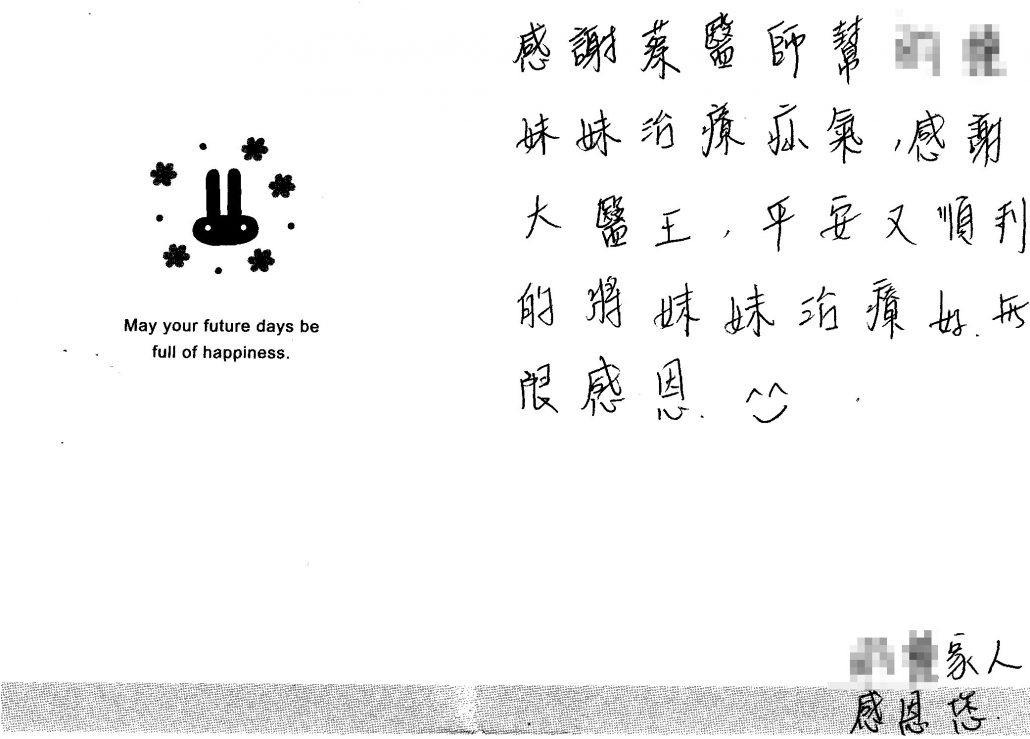 May your future days be
full of happiness.
感謝蔡醫師幫
妹妹治療疝氣,感謝
大醫王,平安又順利
的將妹妹治療好.無
限感恩. ^^
家人
感恩您.